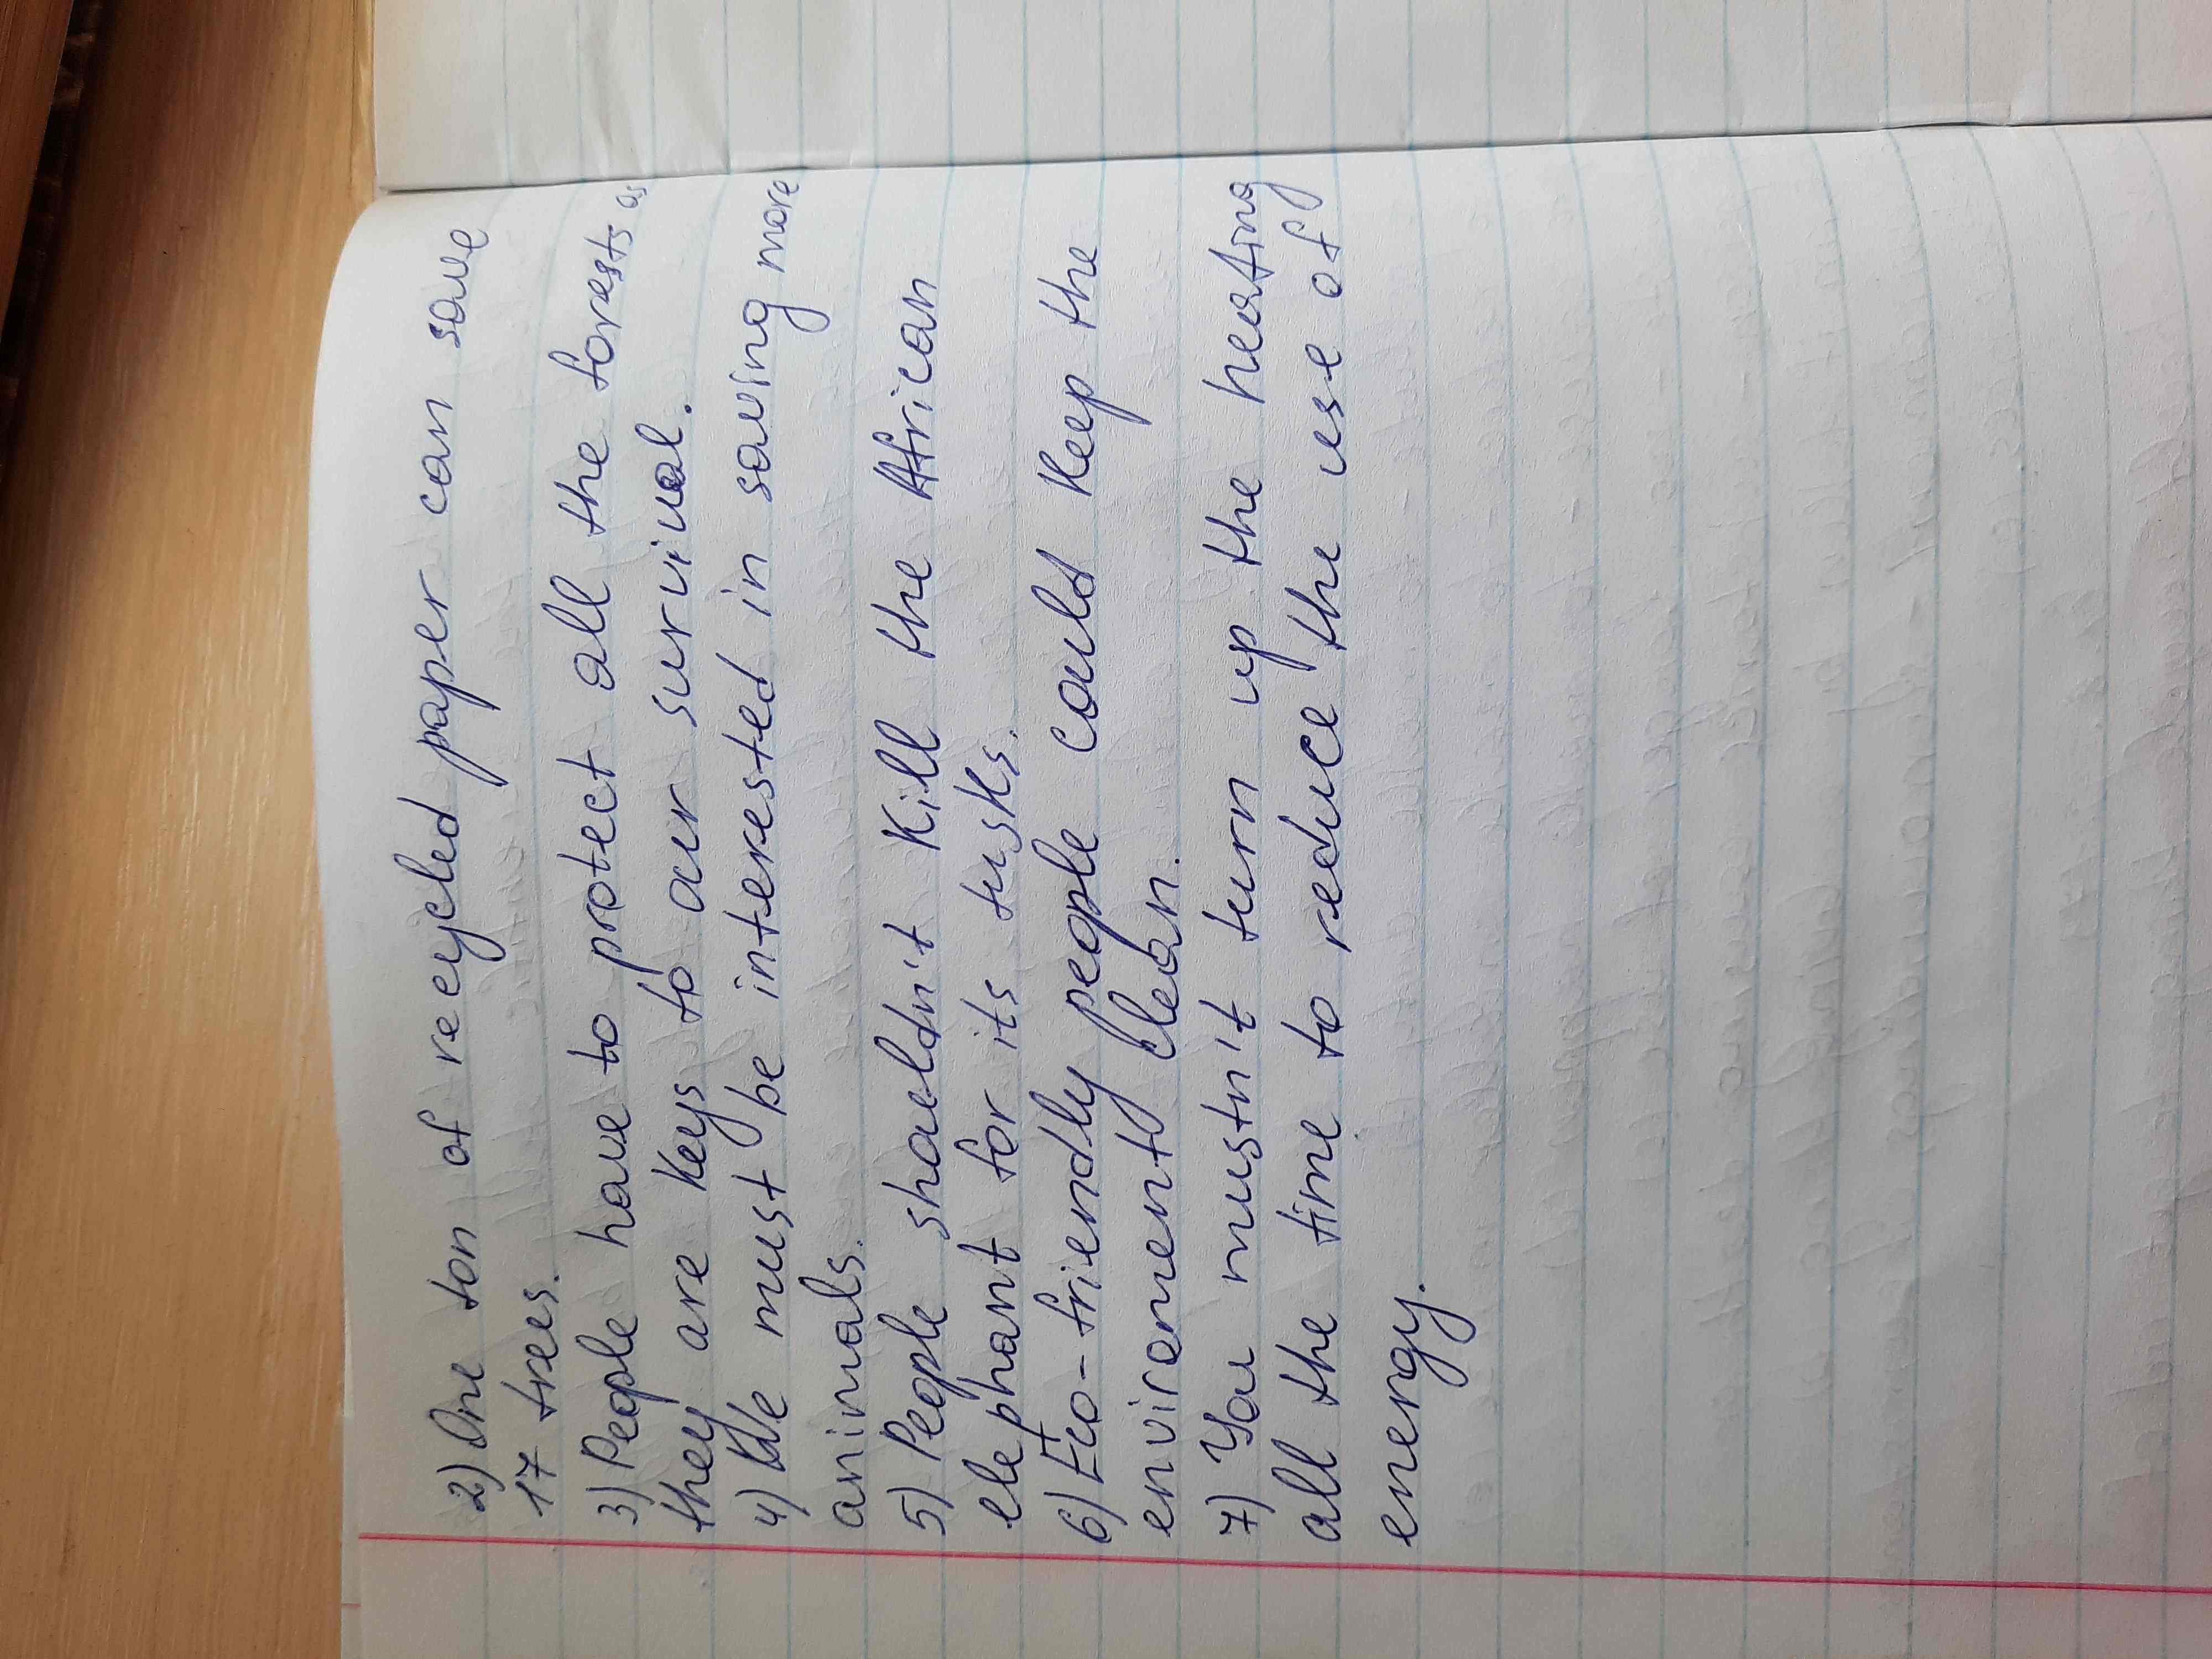 2) One ton of reycled paper can save
17 trees.
3) People have to protect all the forests as
they are keys to our survival.
4) We must be interested in saving more
animals.
5) People shouldn't kill the African
elephant for its tusks.
6) Eco-friendly people could keep the
envirement clean.
7) You mustn't turn up the heating
all the time to reduce the use of
energy.